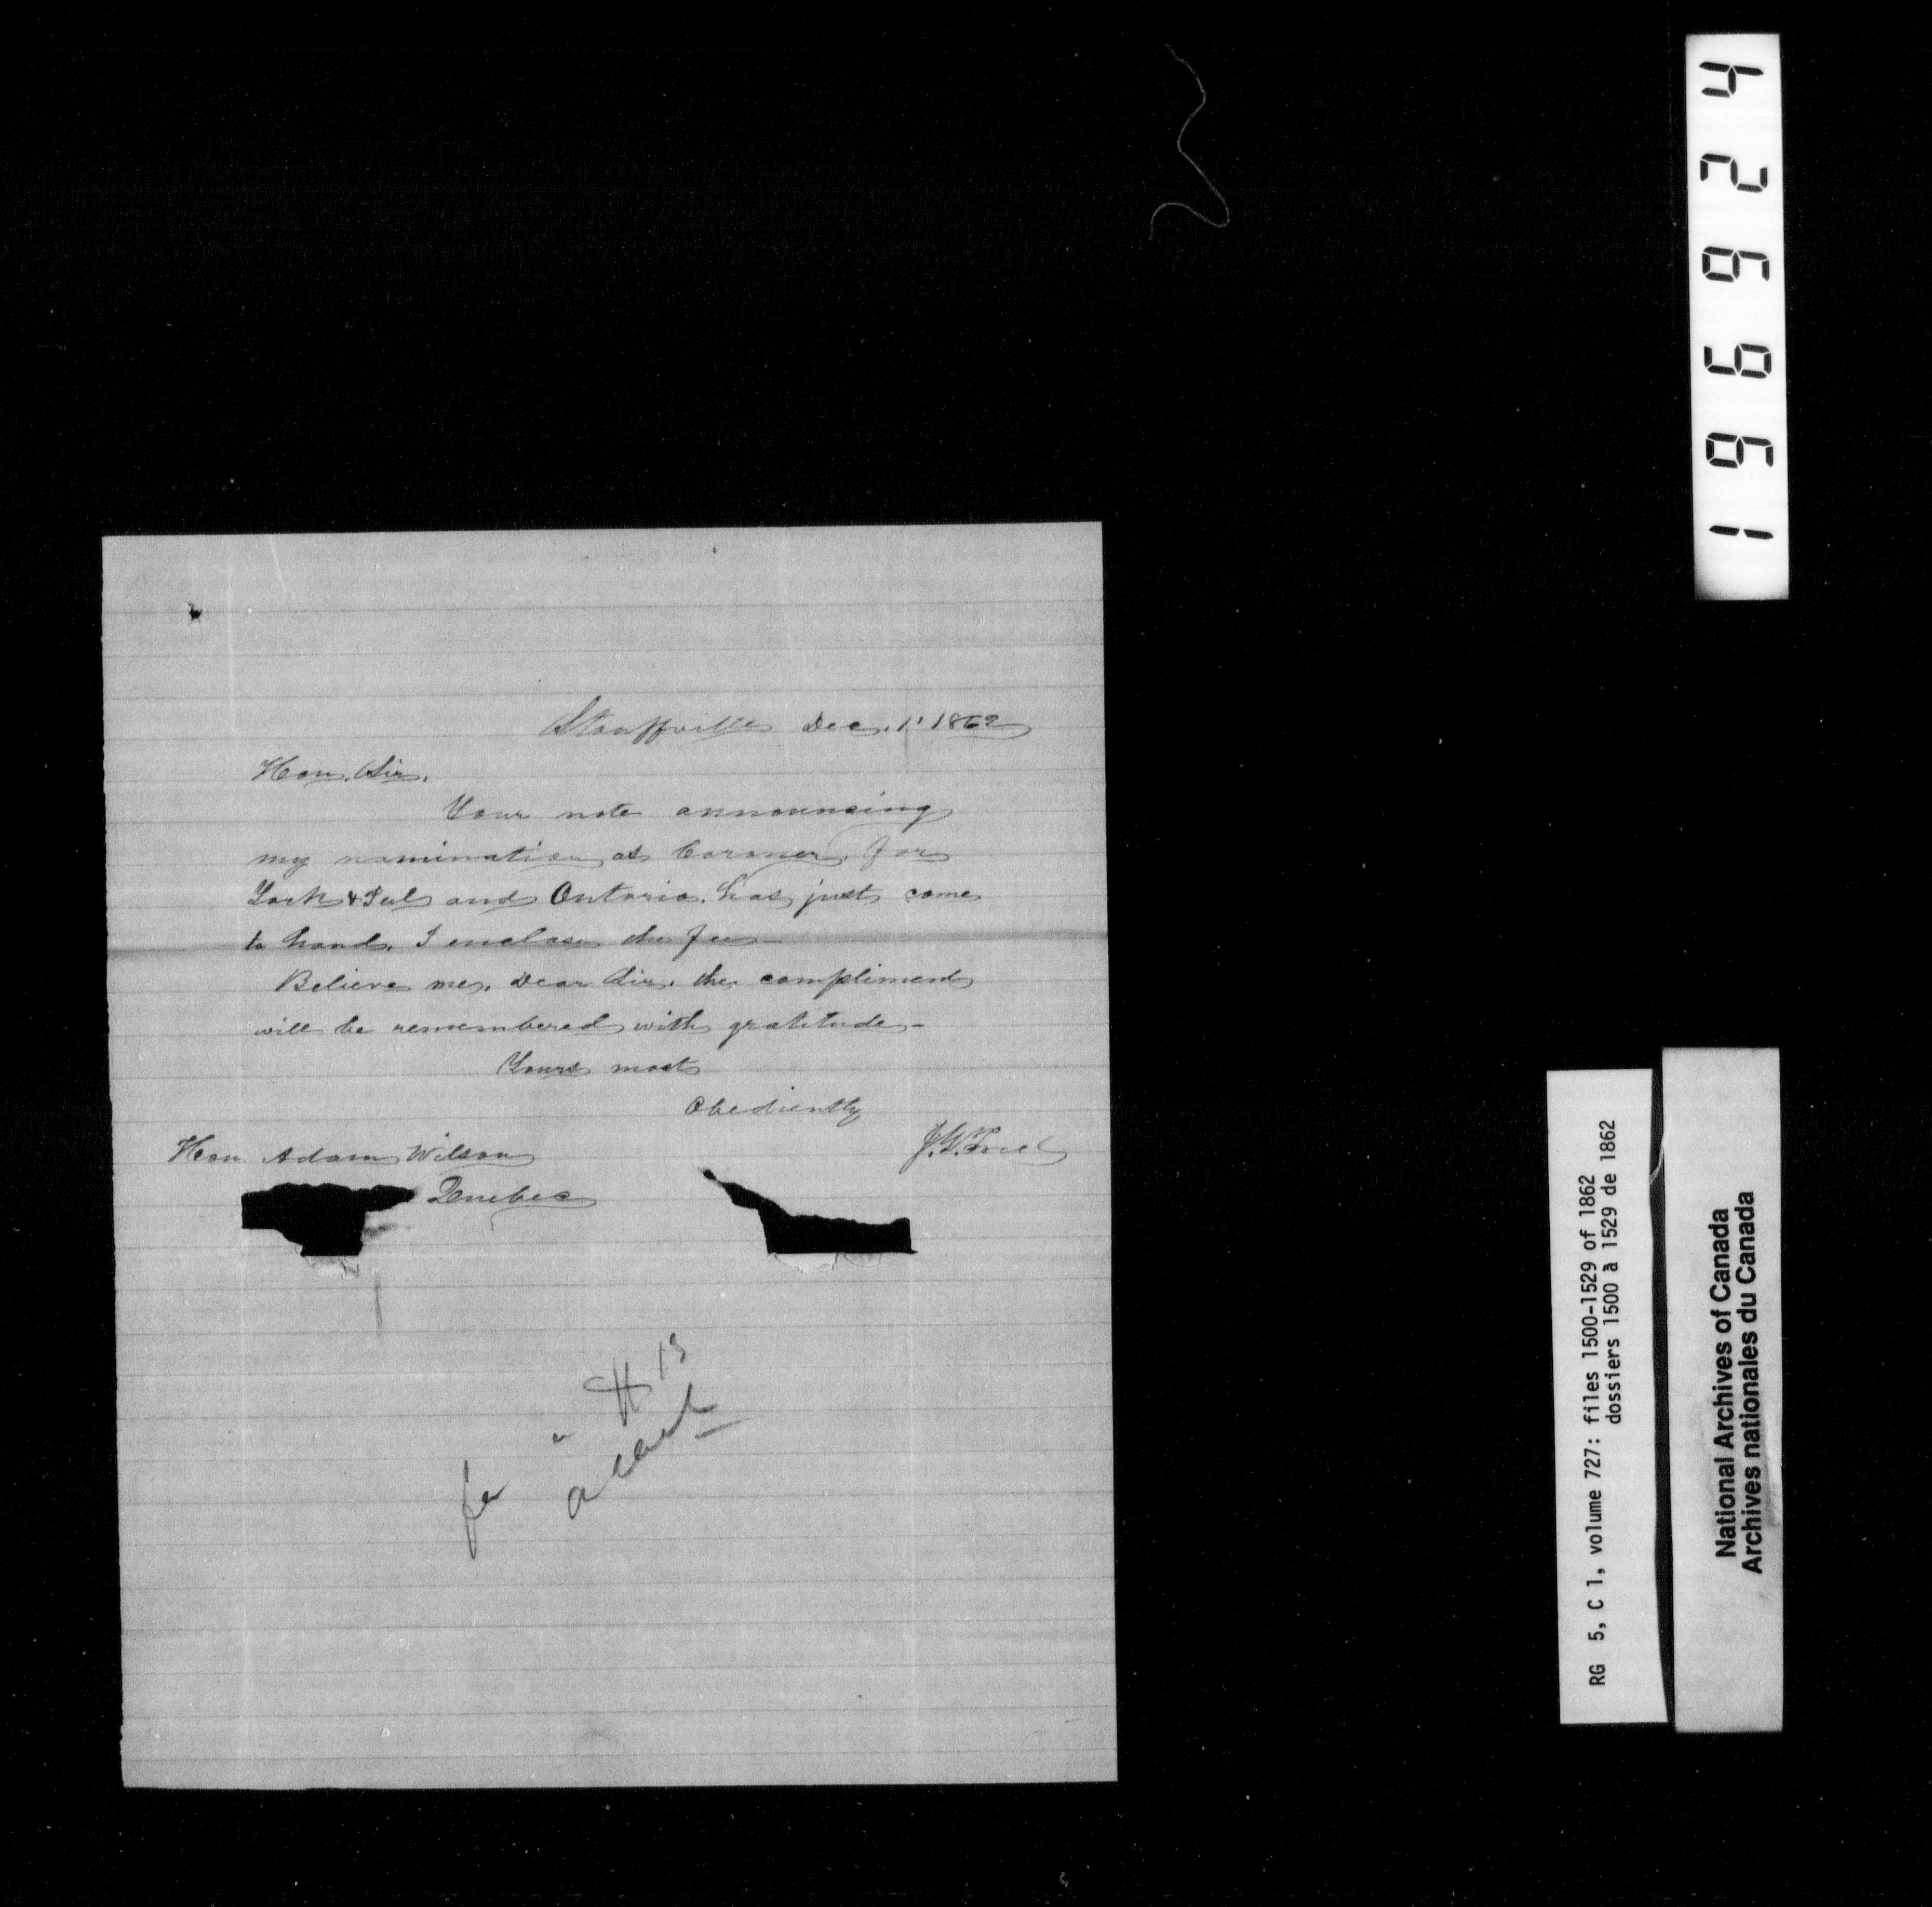 Stouffville Dec. 1' 1862
Hon. Sir.
Your note announcing
my nomination as Coroner, for
York & Peel and Ontario. has just come
to hand. I enclose the fee -
Believe me, Dear Sir, the compliment
will be remembered with gratitude -
Yours most
Obediently
Hon Adam Wilson
Quebec
196924
RG 5, C 1, volume 727: files 1500-1529 of 1862
dossiers 1500 à 1529 de 1862
National Archives of Canada
Archives nationales du Canada